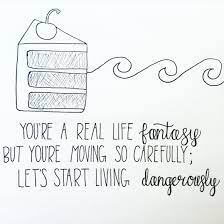 YOU'RE A REAL LIFE fantasy
BUT YOU'RE MOVING SO CAREFULLY;
LET'S START LIVING dangerously